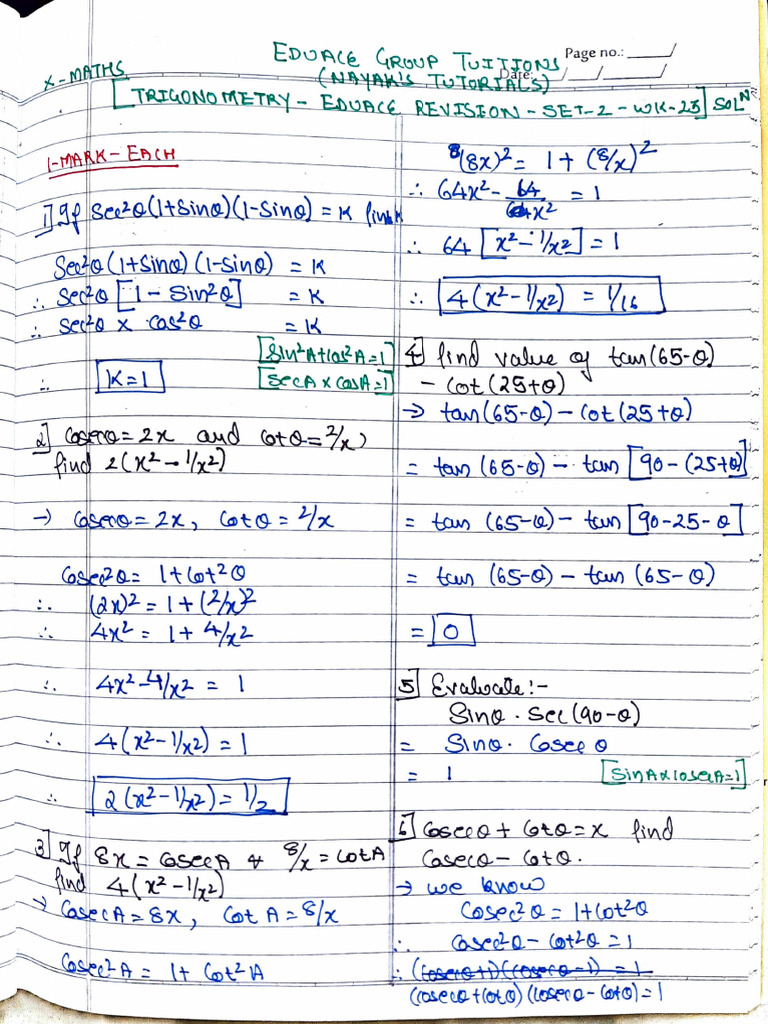 EDUACE GROUP TUITIONS
Page no.:
X-MATHS
(NAYAK'S TUTORIALS)
Date: / /
[TRIGONOMETRY - EDUACE REVISION - SET-2 - WK-25] SOLN
1-MARK-EACH
1] If Sec²θ(1+Sinθ)(1-Sinθ) = K find K
Sec²θ(1+Sinθ)(1-Sinθ) = K
∴ Sec²θ [1 - Sin²θ] = K
∴ Sec²θ × Cos²θ = K
[Sin²A+Cos²A=1]
∴ K=1
[SecA × CosA=1]
2] Cosecθ = 2x and Cotθ = 2/x,
find 2(x² - 1/x²)
→ Cosecθ = 2x, Cotθ = 2/x
Cosec²θ = 1+Cot²θ
∴ (2x)² = 1+(2/x)²
∴ 4x² = 1+ 4/x²
∴ 4x² - 4/x² = 1
∴ 4(x² - 1/x²) = 1
∴ 2(x² - 1/x²) = 1/2
3] If 8x = CosecA & 8/x = CotA
find 4(x² - 1/x²)
→ CosecA = 8x, CotA = 8/x
Cosec²A = 1+ Cot²A
(8x)² = 1+(8/x)²
∴ 64x² - 64/x² = 1
∴ 64 [x² - 1/x²] = 1
∴ 4(x² - 1/x²) = 1/16
4] find value of tan(65-θ)
- Cot(25+θ)
→ tan(65-θ) - Cot(25+θ)
= tan(65-θ) - tan[90-(25+θ)]
= tan(65-θ) - tan[90-25-θ]
= tan(65-θ) - tan(65-θ)
= 0
5] Evaluate:-
Sinθ . Sec(90-θ)
= Sinθ . Cosecθ
= 1 [SinA×CosecA=1]
6] Cosecθ + Cotθ = x find
Cosecθ - Cotθ.
→ we know
Cosec²θ = 1+Cot²θ
∴ Cosec²θ - Cot²θ = 1
∴ (Cosecθ+1)(Cosecθ-1) = 1
(Cosecθ+Cotθ)(Cosecθ-Cotθ) = 1